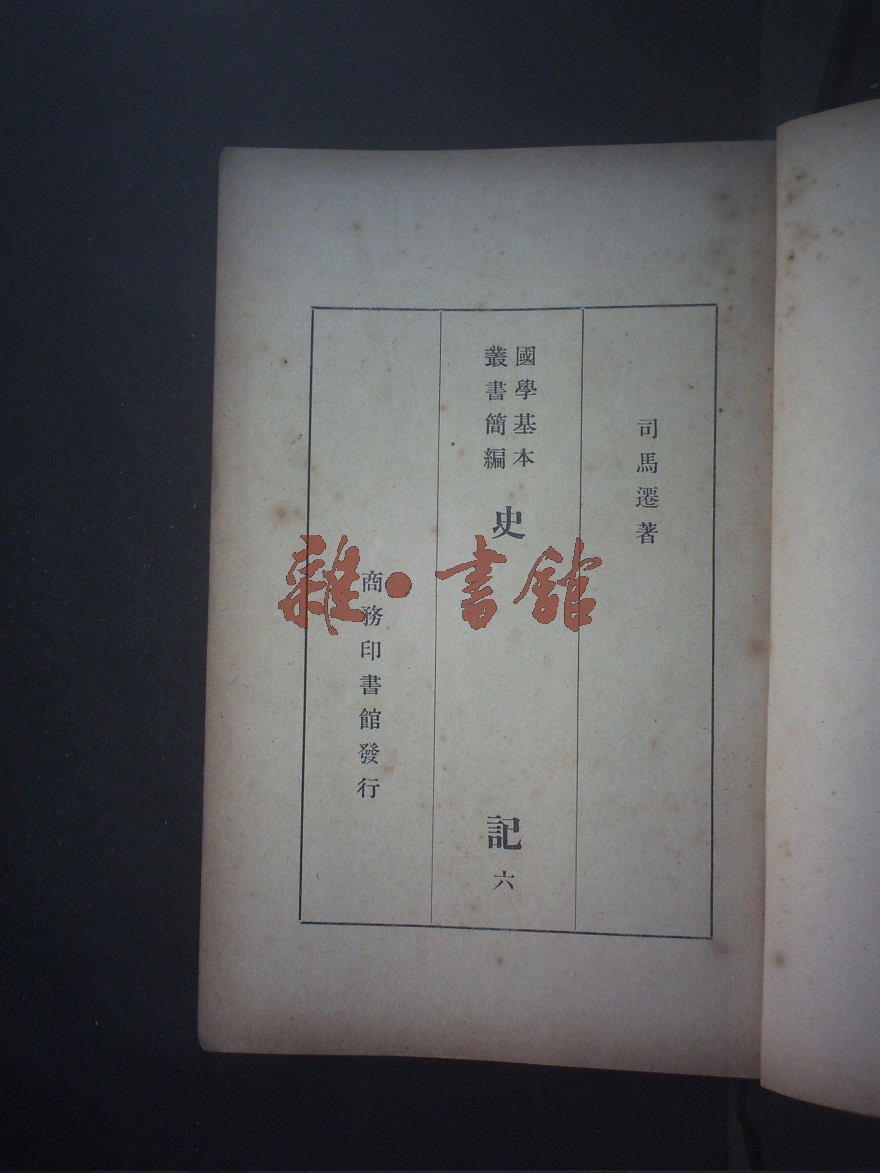 司馬遷著
國學基本
叢書簡編
史記 六
商務印書館發行
雜·書館